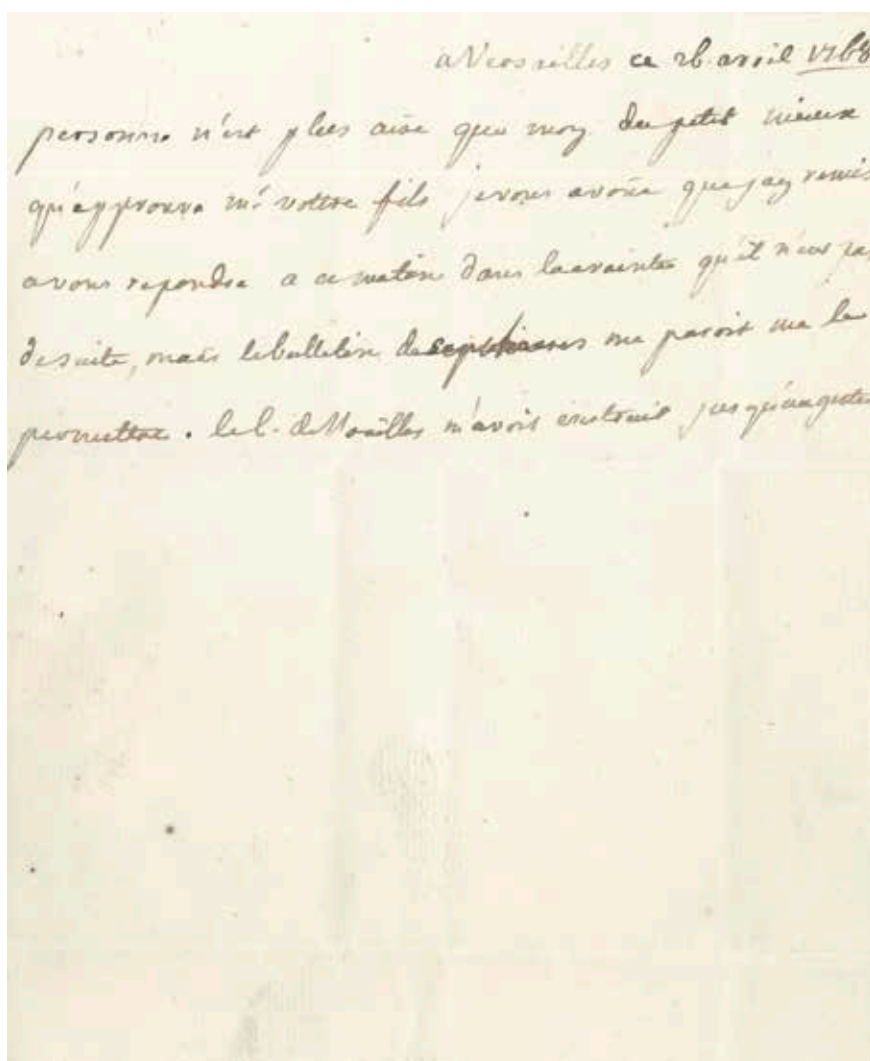 a Versailles ce 26 avril 1768
personne n'est plus aise que moy du petit mieux
qu'epprouve mr votre fils je vous avoüe que jay remis
a vous repondre a ce matin dans la crainte qu'il n'eut pas
de suite, mais le bulletin de me paroit me le
promettre. le C. de Noailles m'avoit instruit jusqu'au